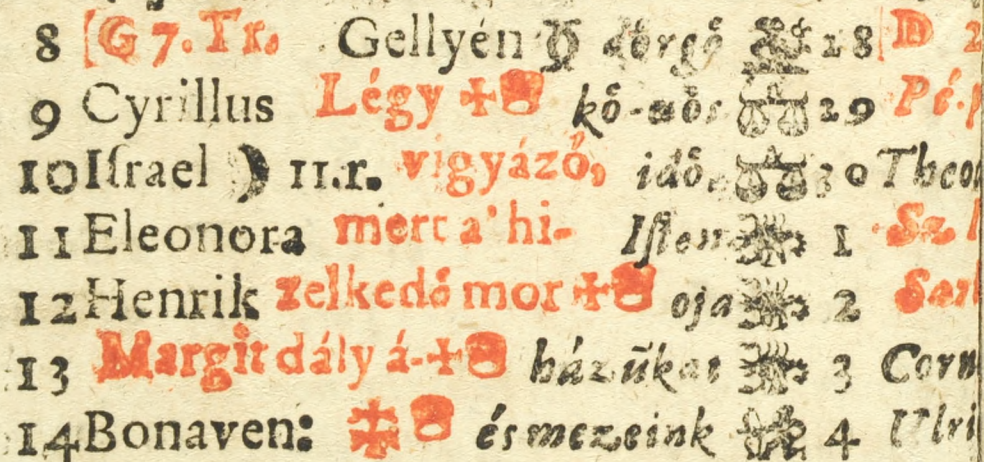 8 [G 7. Tr. Gellyén dörgö 28 D 2
9 Cyrillus Légy kö-dös 29
10 Iſrael 11.r. vigyázó, idö. 30 Theo
11 Eleonora mert a' hi- Iſten 1 Sz.
12 Henrik zelkedö mor oja 2
13 Margit dály á- házūkat 3 Corn
14 Bonaven: és mezeink 4 Ulri